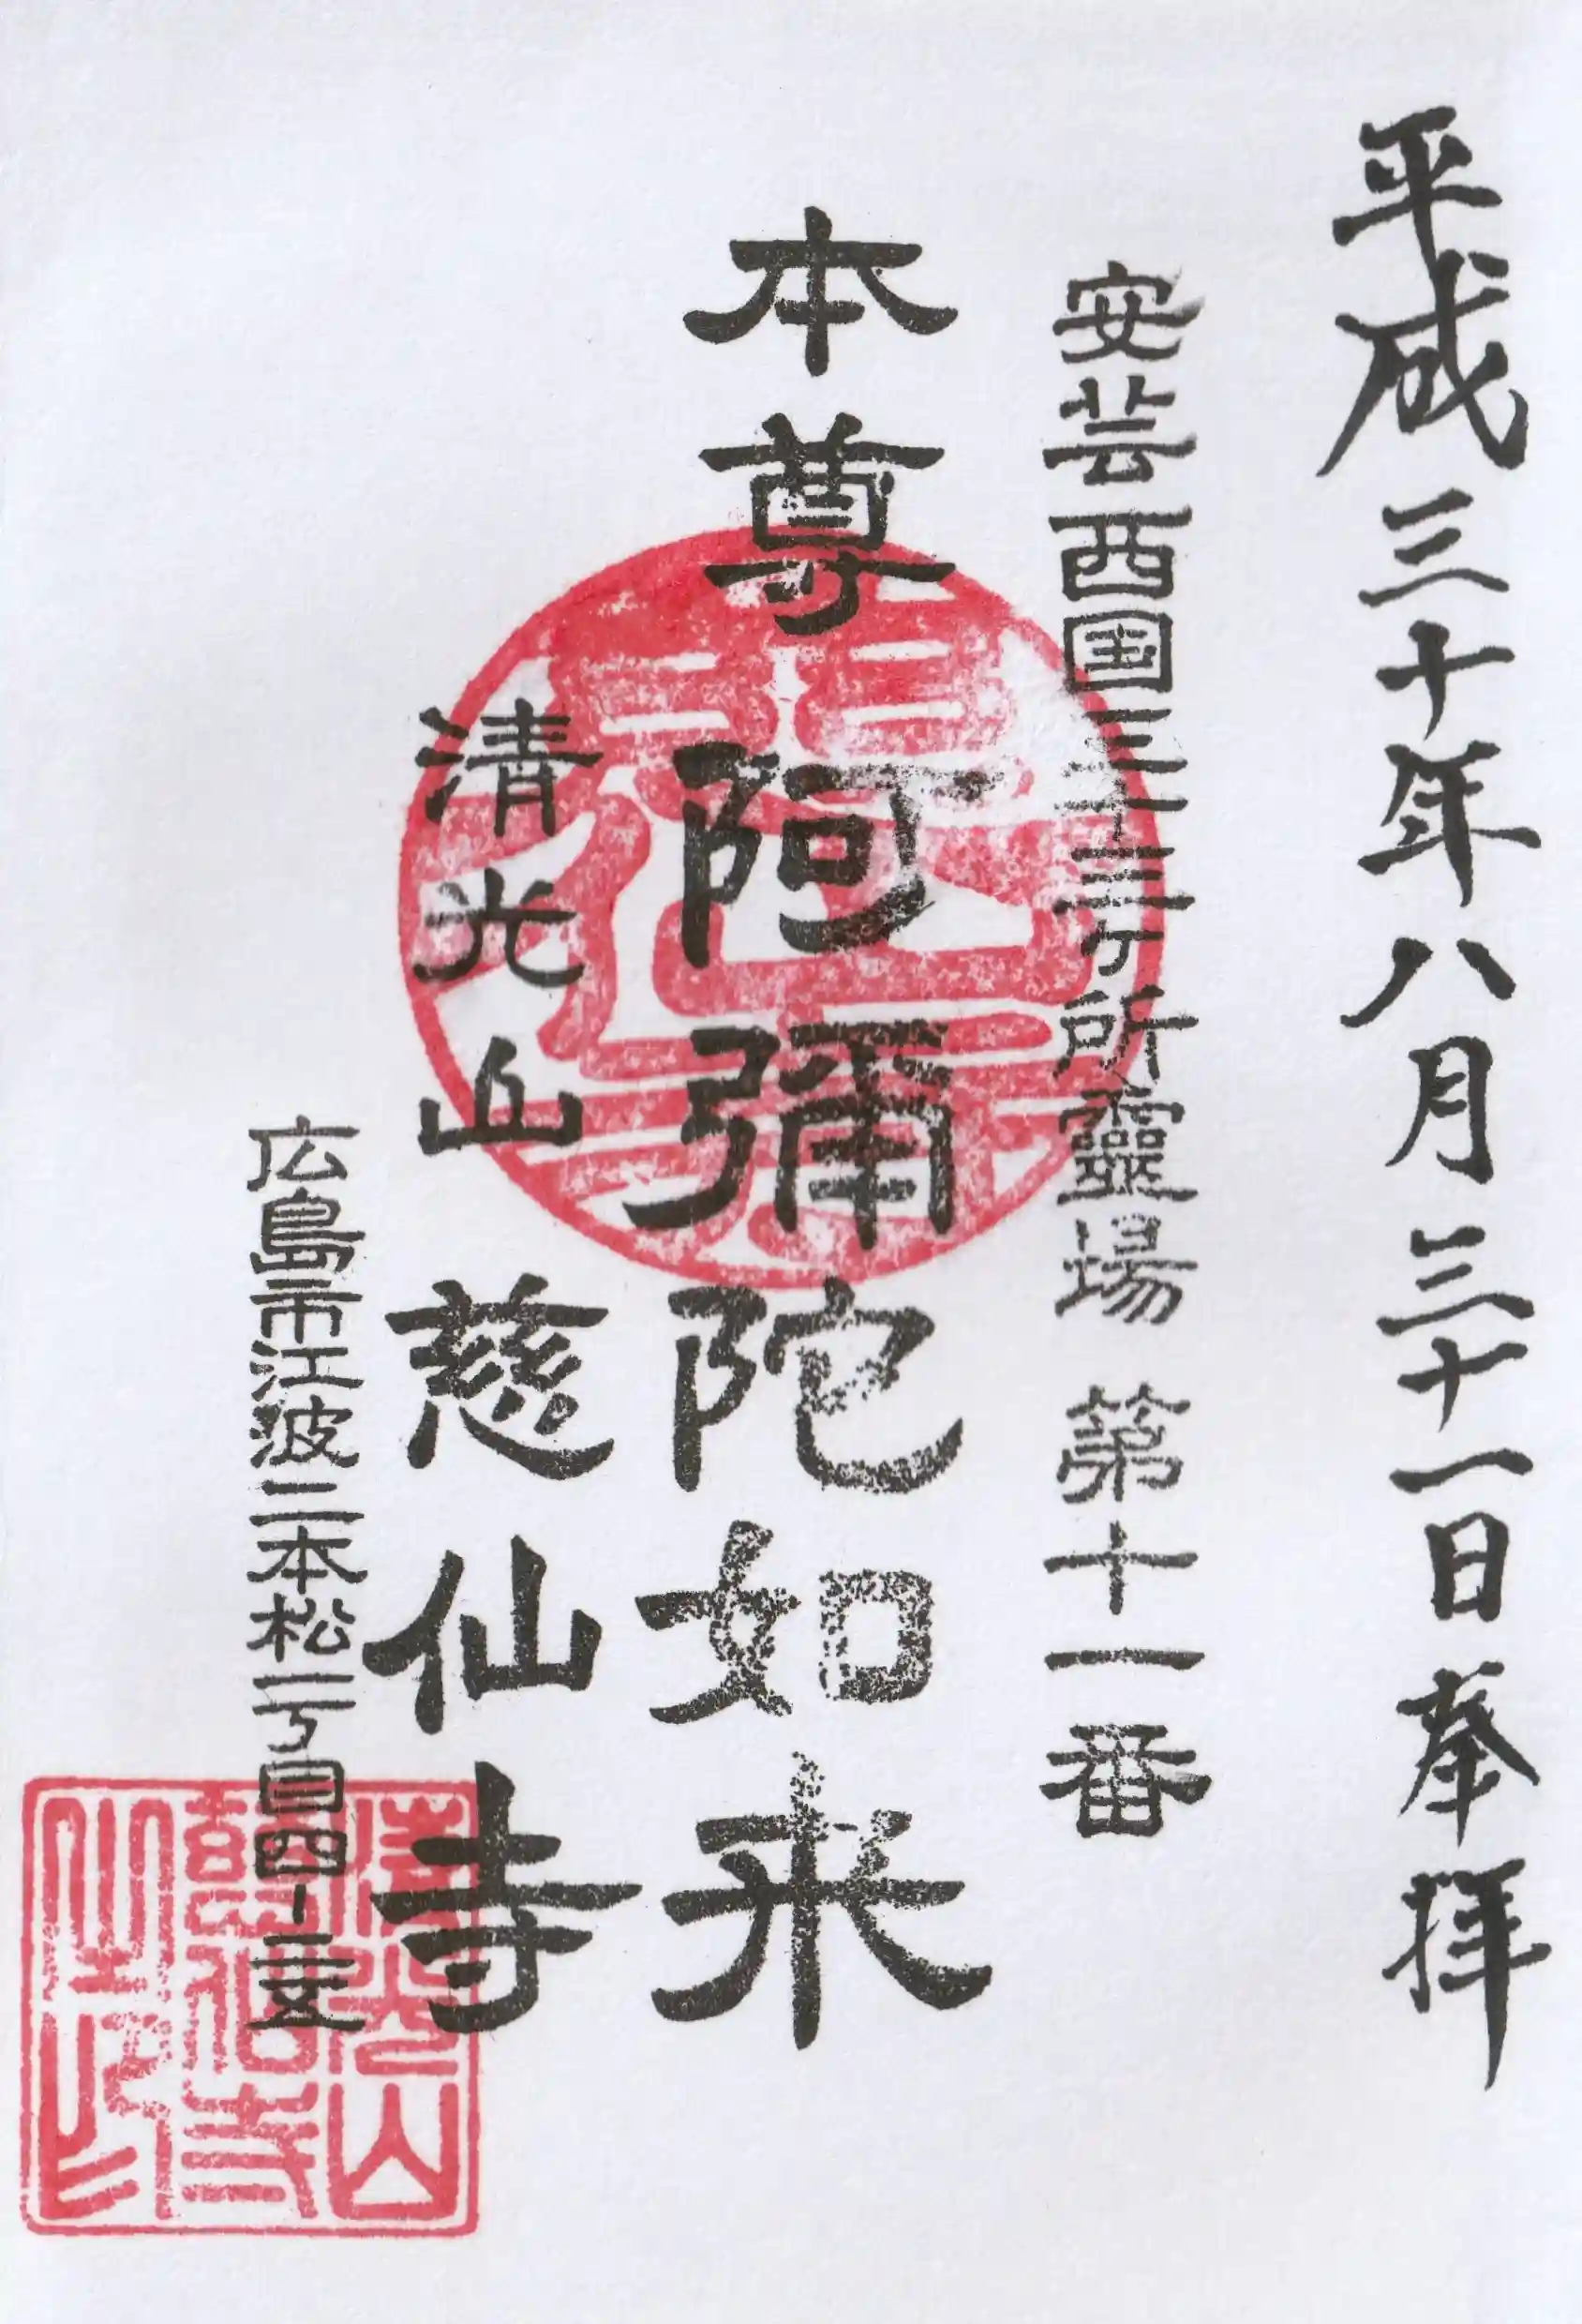 平成三十年八月三十一日奉拝
安芸西国三十三ヶ所靈場 第十一番
本尊 阿彌陀如来
清光山 慈仙寺
広島市江波二本松一丁目四-二五
清光山
慈仙寺
之印